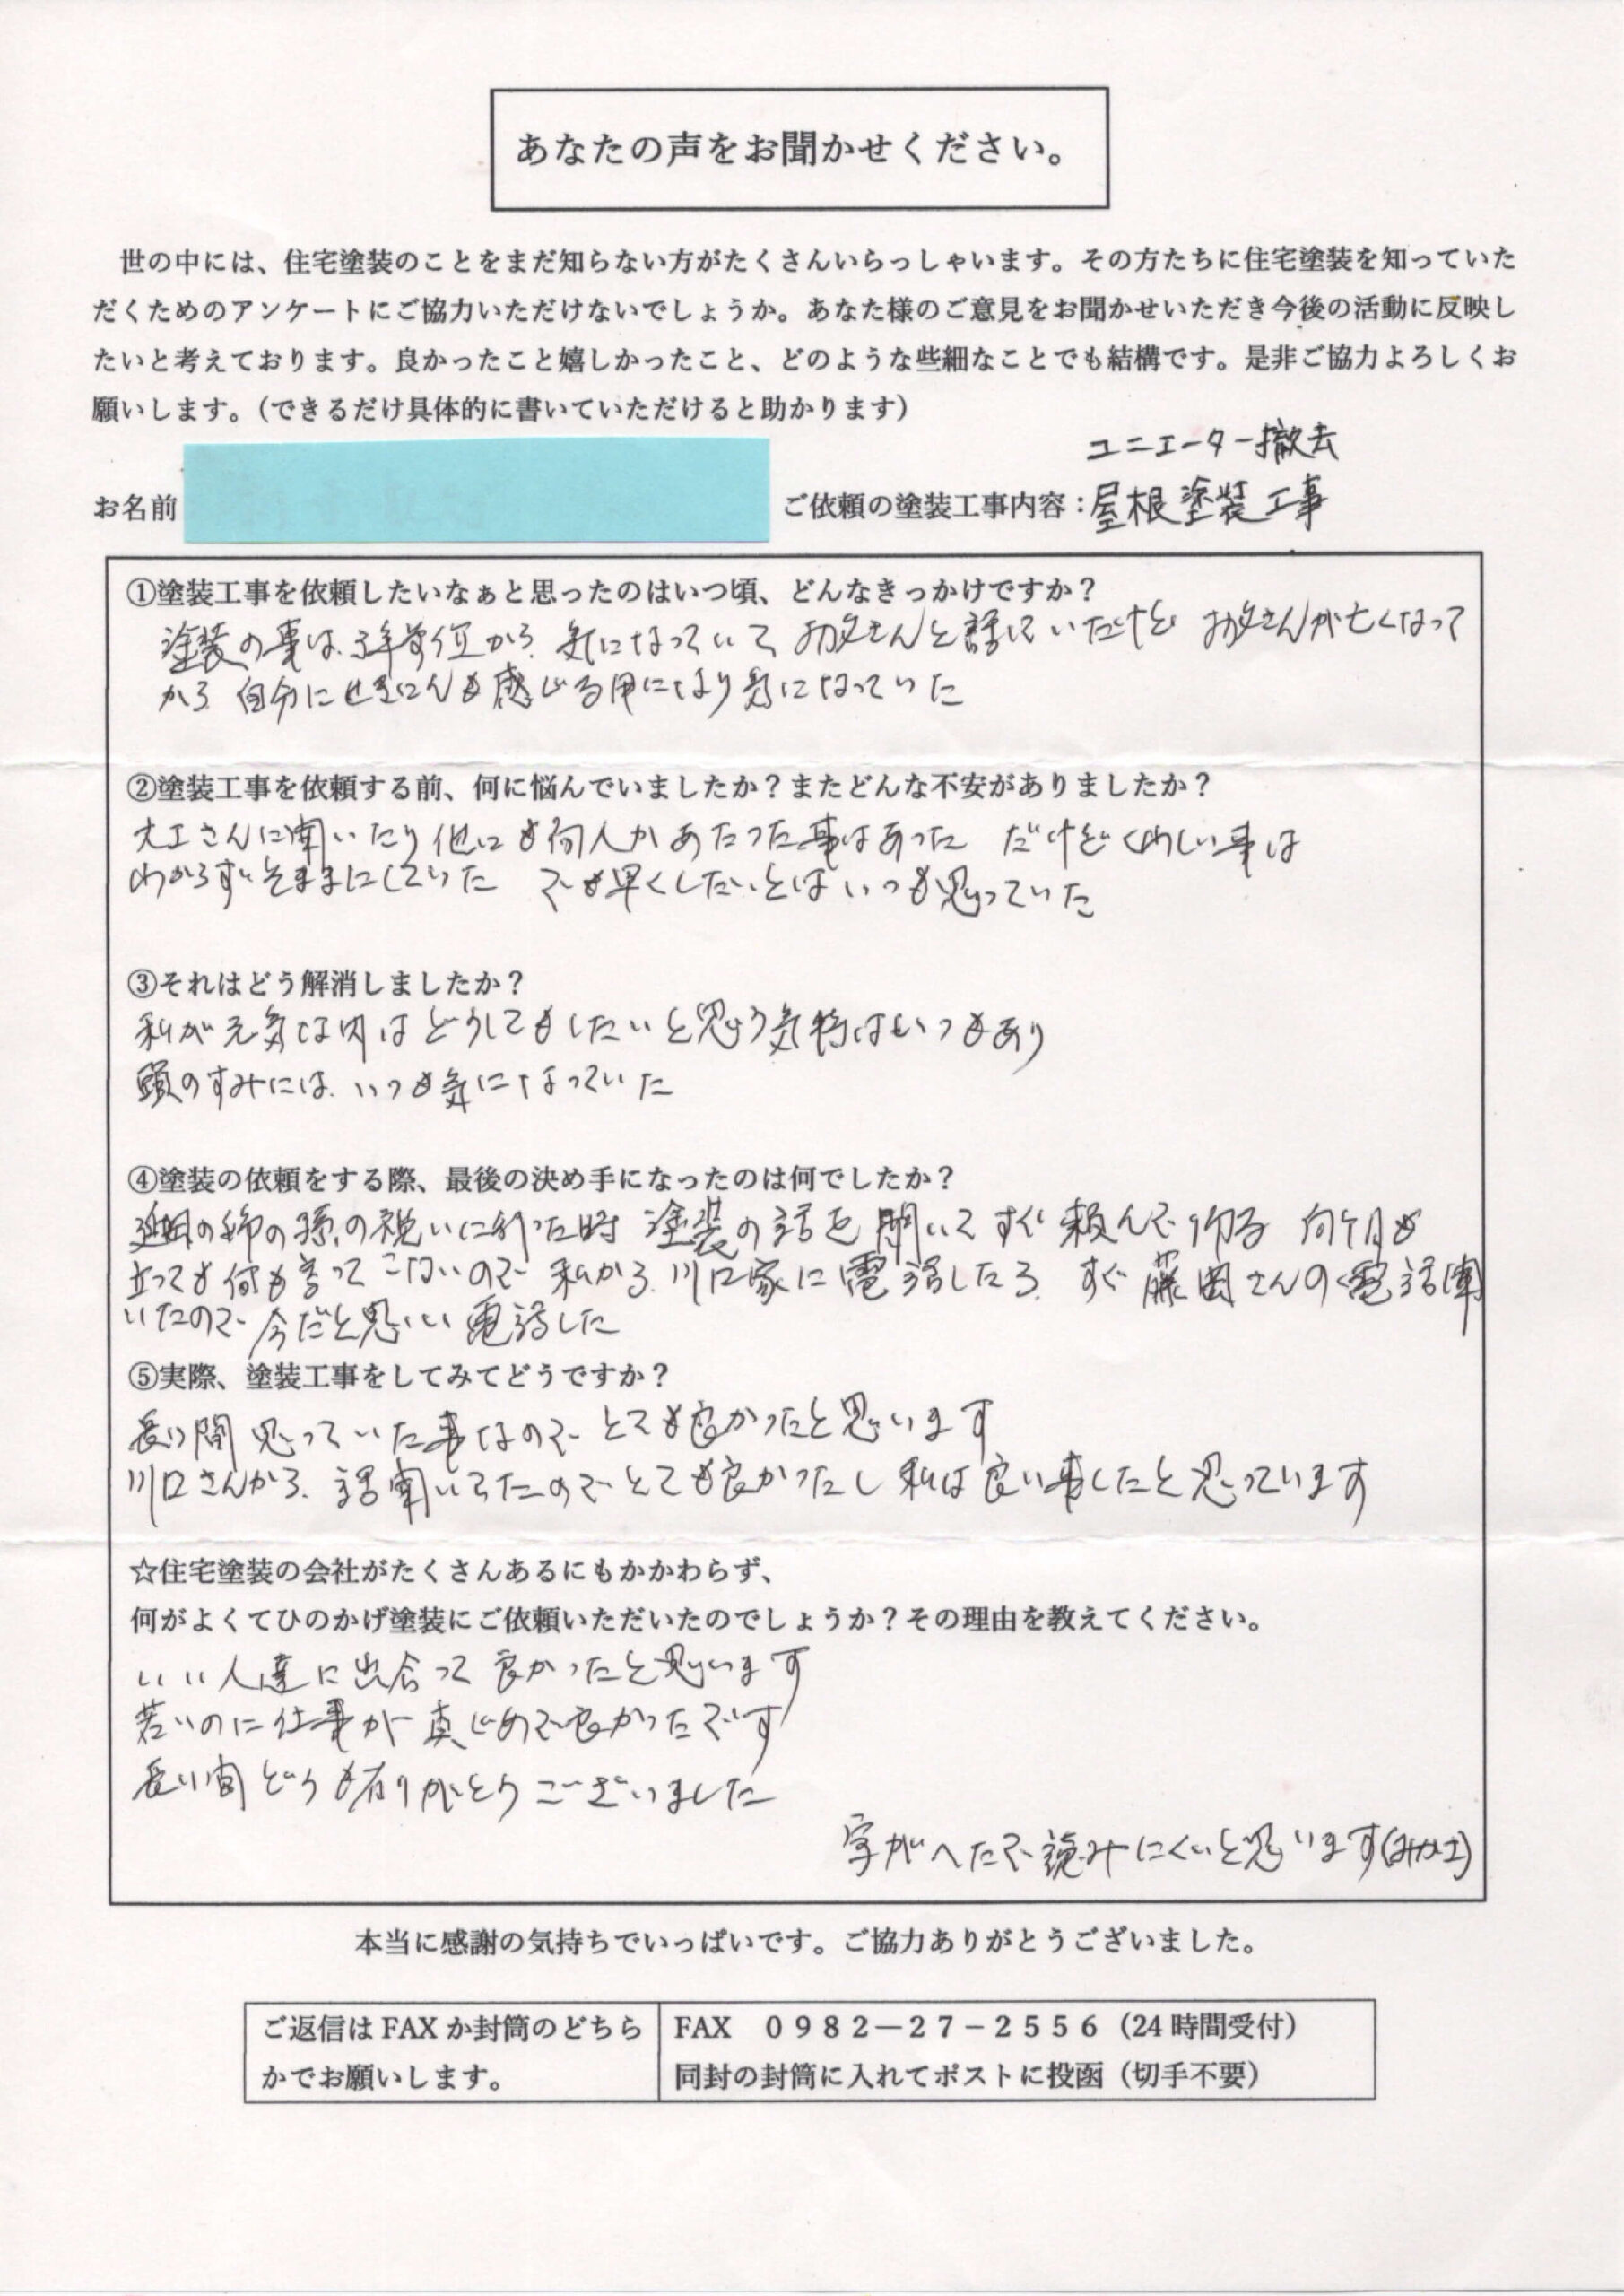 あなたの声をお聞かせください。
世の中には、住宅塗装のことをまだ知らない方がたくさんいらっしゃいます。その方たちに住宅塗装を知っていた
だくためのアンケートにご協力いただけないでしょうか。あなた様のご意見をお聞かせいただき今後の活動に反映し
たいと考えております。良かったこと嬉しかったこと、どのような些細なことでも結構です。是非ご協力よろしくお
願いします。（できるだけ具体的に書いていただけると助かります）
ユニエーター撤去
お名前 ご依頼の塗装工事内容：屋根塗装工事
①塗装工事を依頼したいなぁと思ったのはいつ頃、どんなきっかけですか？
塗装の事は 位から 気になっていて お父さんと話していたけど お父さんが亡くなって
から 自分にせきにんも感じる用になり気になっていた
②塗装工事を依頼する前、何に悩んでいましたか？またどんな不安がありましたか？
大工さんに聞いたり他にも何人かあたった事はあった だけどくわしい事は
わからずそままにしていた でも早くしたいとはいつも思っていた
③それはどう解消しましたか？
私が元気な内はどうしてもしたいと思う気持はいつもあり
頭のすみには、いつも気になっていた
④塗装の依頼をする際、最後の決め手になったのは何でしたか？
の孫の祝いに 時 塗装の話を聞いてすぐ頼んで 何ヶ月も
立っても何も言ってこないので 私から 川口家に電話したら すぐ 藤岡さんの電話聞
いたので 今だと思い 電話した
⑤実際、塗装工事をしてみてどうですか？
長い間 思っていた事なので とても良かったと思います
川口さんから 話聞いてたのでとても良かったし 私は良い事したと思っています
☆住宅塗装の会社がたくさんあるにもかかわらず、
何がよくてひのかげ塗装にご依頼いただいたのでしょうか？その理由を教えてください。
いい人達に出合って良かったと思います
若いのに仕事が真じめで良かったです
長い間どうも有りがとうございました
字がへたで読みにくいと思います
本当に感謝の気持ちでいっぱいです。ご協力ありがとうございました。
ご返信は FAX か封筒のどちら
かでお願いします。
FAX ０９８２－２７－２５５６（24 時間受付）
同封の封筒に入れてポストに投函（切手不要）